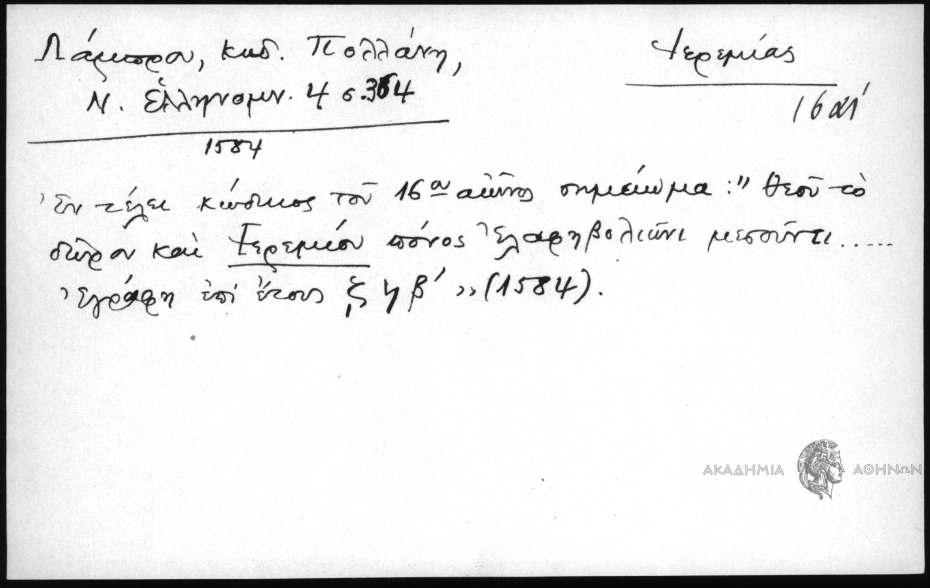 Λάμπρου, κωδ. Πολλάνη,
Ν. Ἑλληνομν. 4 σ. 364
1584
Ἱερεμίας
16 αἰ
Ἐν τέλει κώδικος τοῦ 16ου αἰῶνος σημείωμα: "Θεοῦ τὸ
δῶρον καὶ Ἱερεμίου πόνος Ἐλαφηβολιῶνι μεσοῦντι.....
Ἐγράφη ἐπὶ ἔτους ζ ϟ β´ „ (1584).
ΑΚΑΔΗΜΙΑ ΑΘΗΝΩΝ